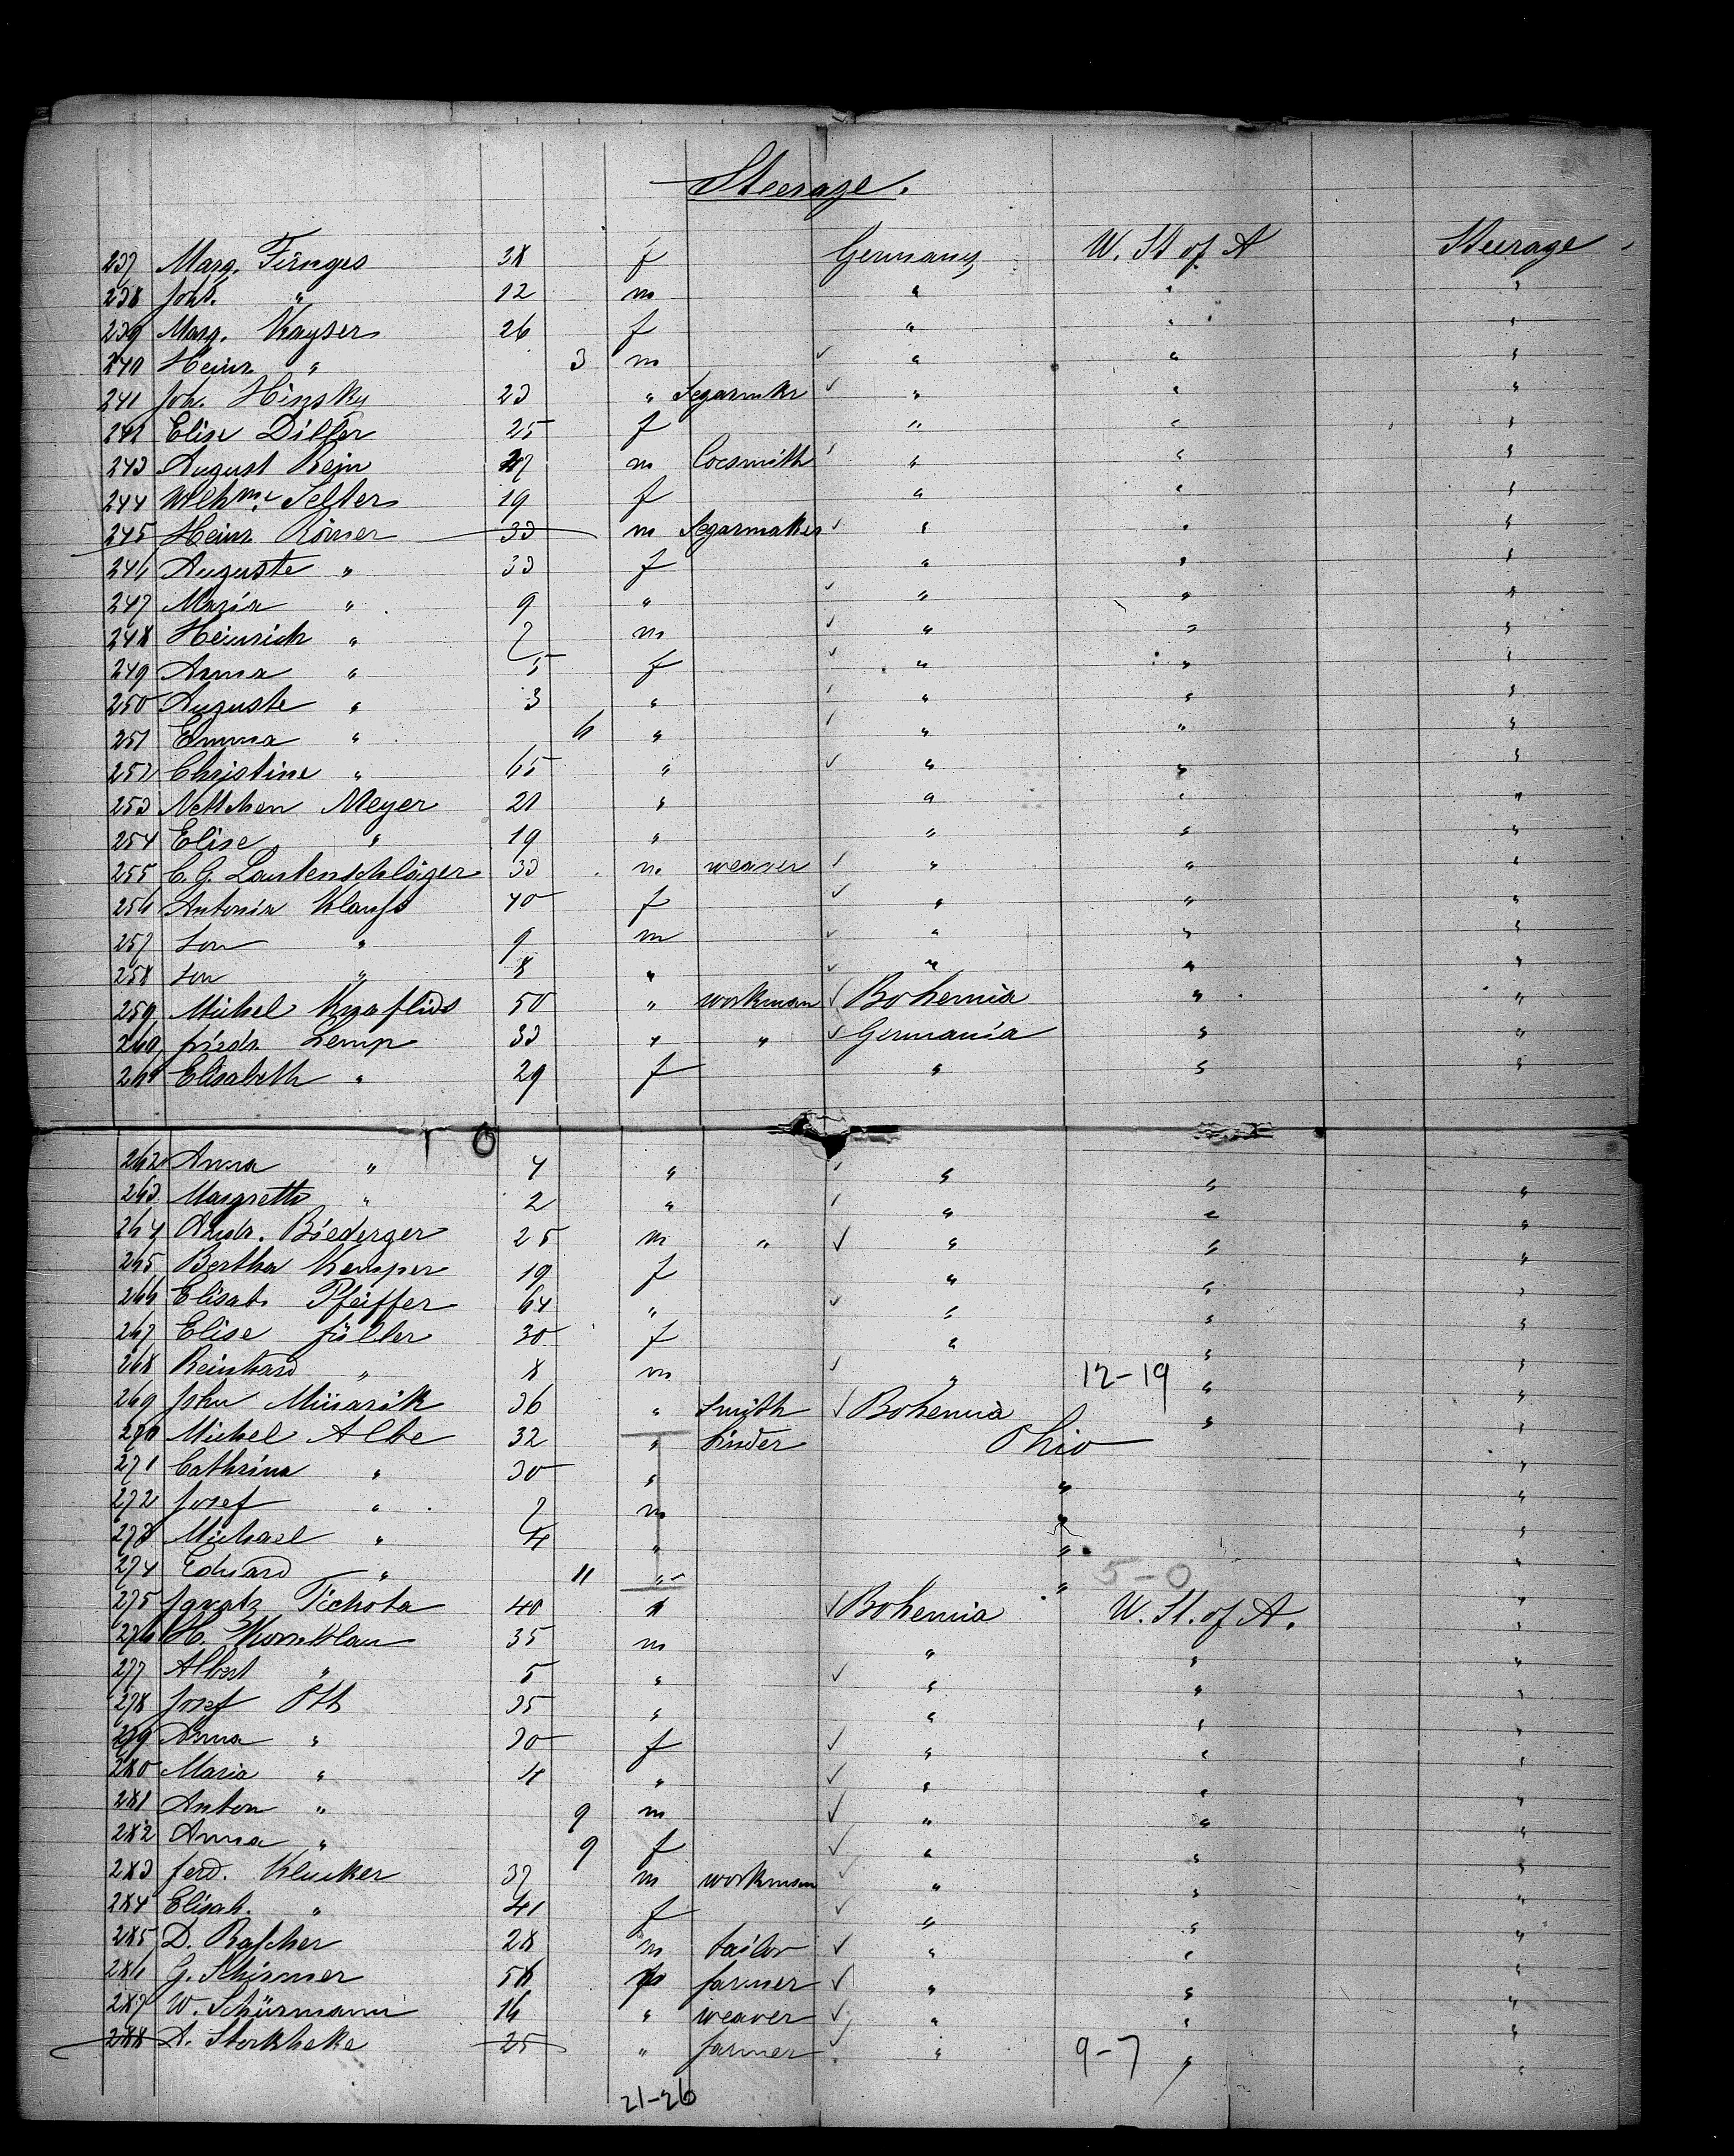 Steerage.
237 Marg. Firnges 38 f Germany W. St of A Steerage
238 Joh. " 12 m " " "
239 Marg. Kayser 26 f " " "
240 Heinr. " 3 m ✓ " " "
241 Joh. Hinsky 23 " Segarmkr ✓ " " "
242 Elise Diller 25 f " " "
243 August Rein m Locsmith ✓ " " "
244 Wilhme. Selter 19 f " " "
245 Heinr. Römer 33 m Segarmaker ✓ " " "
246 Auguste " 33 f " " "
247 Maria " 9 " ✓ " " "
248 Heinrich " 7 m ✓ " " "
249 Anna " 5 f ✓ " " "
250 Auguste " 3 " ✓ " " "
251 Emma " 6 " ✓ " " "
252 Christine " 65 " ✓ " " "
253 Nettchen Meyer 21 " " " "
254 Elise " 19 " " " "
255 C. G. Lautenschläger 33 m weaver ✓ " " "
256 Antonia Klauss 40 f ✓ " " "
257 son " 9 m ✓ " " "
258 son " 8 " ✓ " " "
259 Michel 50 " workman ✓ Bohemia " "
260 friedr. Lemp 33 " " ✓ Germania " "
261 Elisabeth " 29 f " " "
262 Anna " 4 " ✓ " " "
263 Margreth " 2 " ✓ " " "
264 Andr. Biederger 25 m " ✓ " " "
265 Bertha Kemper 19 f " " "
266 Elisab. Pfeiffer 64 " ✓ " " "
267 Elise füller 30 f " " "
268 Reinhard " 8 m ✓ " 12-19 " "
269 John Müsarik 36 " Smith ✓ Bohemia " "
270 Michel Albe 32 " binder Ohio "
271 Cathrina " 30 " " "
272 Josef " 7 m " "
273 Michael " 4 " " "
274 Eduard " 11 " " 5-0 "
275 Ignatz Tichota 40 ✓ Bohemia W. St. of A. "
276 H. 35 m " " "
277 Albert " 5 " ✓ " " "
278 Josef Ott 35 " " " "
279 Anna " 30 f ✓ " " "
280 Maria " 4 " ✓ " " "
281 Anton " 9 m ✓ " " "
282 Anna " 9 f ✓ " " "
283 ferd. Klucker 37 m workman ✓ " " "
284 Elisab. " 41 f ✓ " " "
285 D. Rascher 28 m tailor ✓ " " "
286 G. Schirmer 58 farmer ✓ " " "
287 W. Schürmann 16 " weaver ✓ " " "
288 A. Storkheke 25 " farmer ✓ " 9-7 " "
21-26